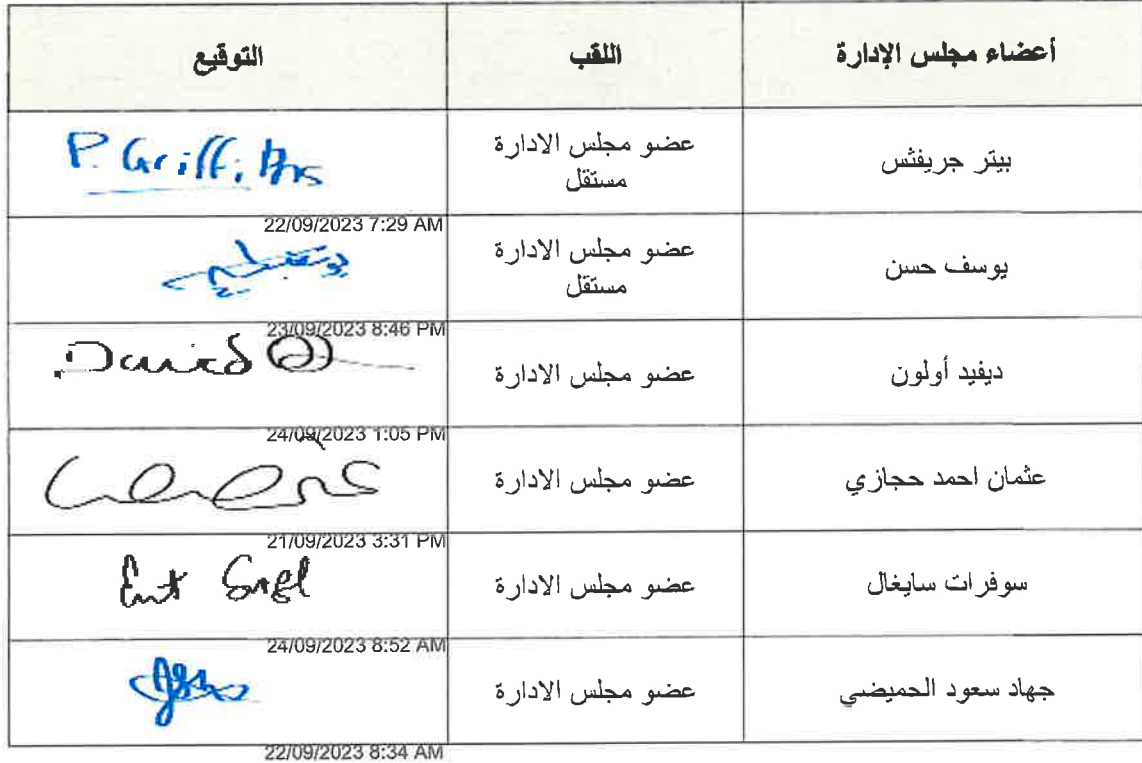 أعضاء مجلس الإدارة
اللقب
التوقيع
بيتر جريفثس
عضو مجلس الادارة
مستقل
P. Griffiths
22/09/2023 7:29 AM
يوسف حسن
عضو مجلس الادارة
مستقل
23/09/2023 8:46 PM
ديفيد أولون
عضو مجلس الادارة
David
24/09/2023 1:05 PM
عثمان احمد حجازي
عضو مجلس الادارة
21/09/2023 3:31 PM
سوفرات سايغال
عضو مجلس الادارة
24/09/2023 8:52 AM
جهاد سعود الحميضي
عضو مجلس الادارة
22/09/2023 8:34 AM